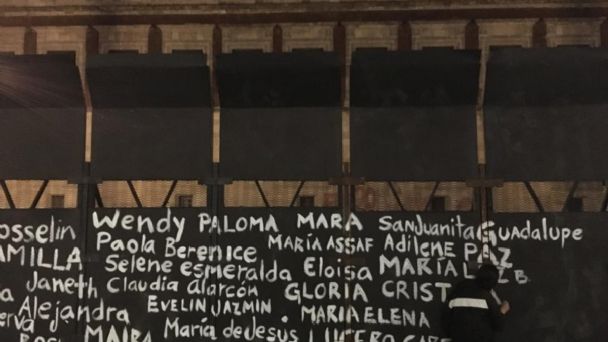 Wendy PALOMA MARA SanJuanita Guadalupe
osselin Paola Berenice MARÍA ASSAF Adilene PAZ
AMILLA Selene esmeralda Eloisa MARÍA LUZ B.
Janeth Claudia alarcón GLORIA CRIST
Alejandra EVELIN JAZMIN MARIA ELENA
erva MAIRA María de Jesus LUCERO